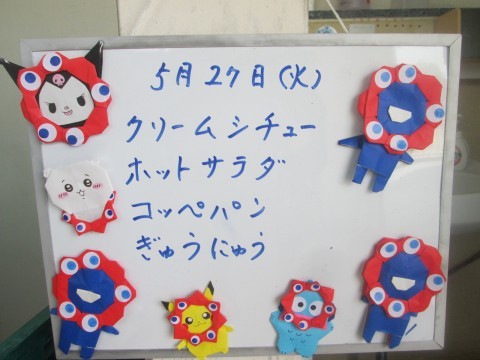 5月27日(火)
クリームシチュー
ホットサラダ
コッペパン
ぎゅうにゅう